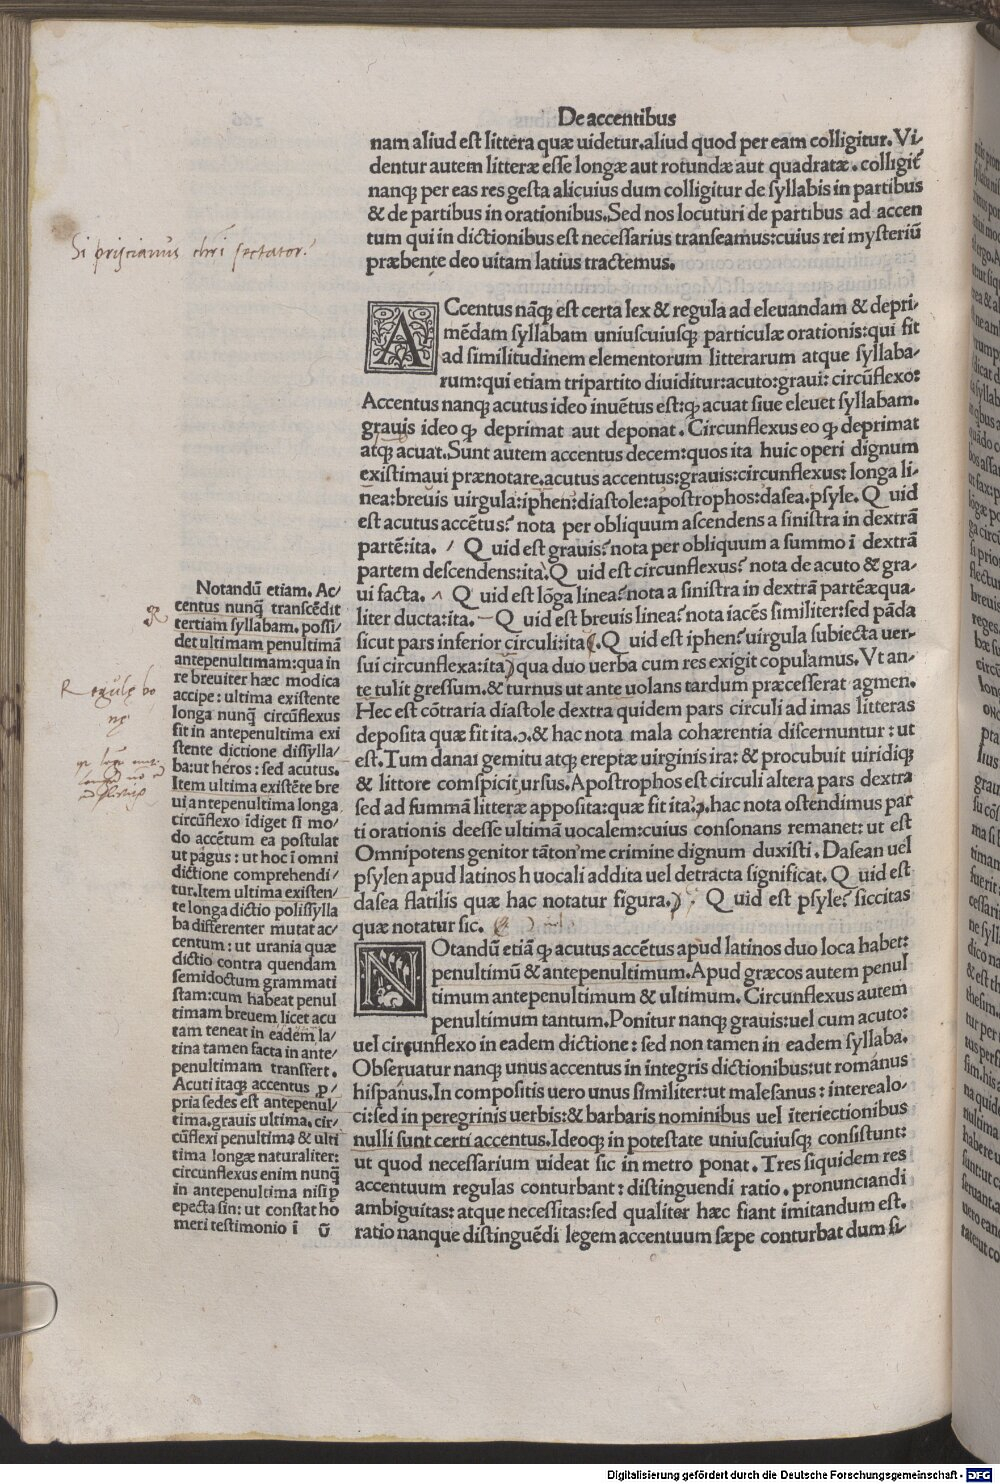 De accentibus
nam aliud eſt littera quæ uidetur.aliud quod per eam colligitur.Vi-
dentur autem litteræ eſſe longæ aut rotundæ aut quadratæ.colligit̃
nanq; per eas res geſta alicuius dum colligitur de ſyllabis in partibus
& de partibus in orationibus.Sed nos locuturi de partibus ad accen
tum qui in dictionibus eſt neceſſarius tranſeamus:cuius rei myſteriũ
præbente deo uitam latius tractemus.
Si priſcianus chr̄i ſectator?
ACcentus nãq; eſt certa lex & regula ad eleuandam & depri-
mẽdam ſyllabam uniuſcuiuſq; particulæ orationis:qui fit
ad ſimilitudinem elementorum litterarum atque ſyllaba-
rum:qui etiam tripartito diuiditur:acuto:graui:circũflexo:
Accentus nanq; acutus ideo inuẽtus eſt:ꝙ acuat ſiue eleuet ſyllabam.
grauis ideo ꝙ deprimat aut deponat.Circunflexus eo ꝙ deprimat
atq; acuat.Sunt autem accentus decem:quos ita huic operi dignum
exiſtimaui prænotare.acutus accentus:grauis:circunflexus:longa li-
nea:breuis uirgula:iphen:diaſtole:apoſtrophos:daſea.pſyle.Q uid
eſt acutus accẽtus? nota per obliquum aſcendens a ſiniſtra in dextrã
partẽ:ita. ⸍ Q uid eſt grauis?nota per obliquum a ſummo ĩ dextrã
partem deſcendens:ita ̀.Q uid eſt circunflexus? nota de acuto & gra-
ui facta. ^ Q uid eſt lõga linea?nota a ſiniſtra in dextrã partẽ æqua-
liter ducta:ita. – Q uid eſt breuis linea?nota iacẽs ſimiliter:ſed pãda
ſicut pars inferior circuli:ita(.Q uid eſt iphen?uirgula ſubiecta uer-
ſui circunflexa:ita)qua duo uerba cum res exigit copulamus.Vt an-
te tulit greſſum.& turnus ut ante uolans tardum præceſſerat agmen.
Hec eſt cõtraria diaſtole dextra quidem pars circuli ad imas litteras
depoſita quæ fit ita.ɔ.& hac nota mala cohærentia diſcernuntur:ut
eſt.Tum danai gemitu atq; ereptæ uirginis ira:& procubuit uiridiq;
& littore comſpicit urſus.Apoſtrophos eſt circuli altera pars dextra
ſed ad ſummã litteræ appoſita:quæ fit ita.ɔ.hac nota oſtendimus par
ti orationis deeſſe ultimã uocalem:cuius conſonans remanet:ut eſt
Omnipotens genitor tãton'me crimine dignum duxiſti.Daſean uel
pſylen apud latinos h uocali addita uel detracta ſignificat.Q uid eſt
daſea flatilis quæ hac notatur figura.) Q uid eſt pſyle? ſiccitas
quæ notatur ſic.
NOtandũ etiã ꝙ acutus accẽtus apud latinos duo loca habet:
penultimũ & antepenultimum.Apud græcos autem penul
timum antepenultimum & ultimum.Circunflexus autem
penultimum tantum.Ponitur nanq; grauis:uel cum acuto:
uel circunflexo in eadem dictione:ſed non tamen in eadem ſyllaba.
Obſeruatur nanq; unus accentus in integris dictionibus:ut románus
hiſpánus.In compoſitis uero unus ſimiliter:ut maleſanus:interealo-
ci:ſed in peregrinis uerbis:& barbaris nominibus uel ĩteriectionibus
nulli ſunt certi accentus.Ideoq; in poteſtate uniuſcuiuſq; conſiſtunt:
ut quod neceſſarium uideat ſic in metro ponat.Tres ſiquidem res
accentuum regulas conturbant:diſtinguendi ratio.pronunciandi
ambiguitas:atque neceſſitas:ſed qualiter hæc fiant imitandum eſt.
ratio nanque diſtinguẽdi legem accentuum ſæpe conturbat dum ſi-
Notandũ etiam.Ac/
centus nunq̃ tranſcẽdit
tertiam ſyllabam.poſſi/
det ultimam penultimã
antepenultimam:qua in
re breuiter hæc modica
accipe:ultima exiſtente
longa nunq̃ circũflexus
fit in antepenultima exi
ſtente dictione diſſylla/
ba:ut heros:ſed acutus.
Item ultima exiſtẽte bre
ui antepenultima longa
circũflexo ĩdiget ſi mo/
do accẽtum ea poſtulat
ut pâgus:ut hoc ĩ omni
dictione comprehendi/
tur.Item ultima exiſten/
te longa dictio poliſſylla
ba differenter mutat ac/
centum:ut urania quæ
dictio contra quendam
ſemidoctum grammati
ſtam:cum habeat penul
timam breuem licet acu
tam teneat in eadem la/
tina tamen facta in ante/
penultimam tranſfert.
Acuti itaq; accentus ꝓ/
pria ſedes eſt antepenul/
tima.grauis ultima.cir/
cũflexi penultima & ulti
tima longæ naturaliter:
circunflexus enim nunq̃
in antepenultima niſi ꝑ
epecta ſin:ut conſtat ho
meri teſtimonio ĩ ũ
Regulę bo
nę
Digitalisierung gefördert durch die Deutsche Forschungsgemeinschaft - DFG